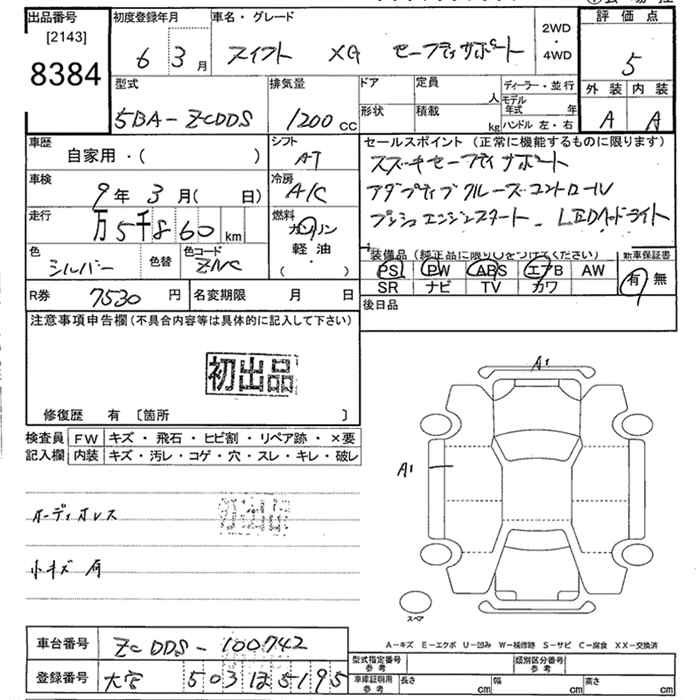 出品番号 初度登録年月 車名・グレード 2WD・4WD 評価点
[2143]
8384 6 3月 スイフト XG セーフティサポート 5
型式 排気量 ドア 定員 人 ディーラー・並行 外装 内装
5BA-ZCDDS 1200cc 形状 積載 kg モデル年式 年 ハンドル 左・右 A A
車歴 自家用・( ) シフト AT
セールスポイント (正常に機能するものに限ります)
スズキセーフティサポート
車検 9年3月( 日) 冷房 A/C
アダプティブクルーズコントロール
走行 万5千860km 燃料 ガソリン 軽油 ( )
プッシュエンジンスタート. LEDヘッドライト
色 シルバー 色替 色コード ZNC
装備品(純正品に限り○をつけてください) 新車保証書
PS PW ABS エアB AW 有 無
SR ナビ TV カワ
R券 7530円 名変期限 月 日
後日品
注意事項申告欄(不具合内容等は具体的に記入して下さい)
初出品
修復歴 有 〔箇所 〕
検査員 FW キズ・飛石・ヒビ割・リペア跡・×要
記入欄 内装 キズ・汚レ・コゲ・穴・スレ・キレ・破レ
A1
A1
オーディオレス
初出品
小キズ有
スペア
A-キズ E-エクボ U-凹み W-補修跡 S-サビ C-腐食 XX-交換済
車台番号 ZCDDS-100742
型式指定番号 参考 類別区分番号 参考
登録番号 大宮 503 は 5195
車庫証明用 参考 長さ cm 幅 cm 高さ cm